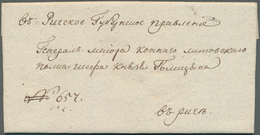 въ Рижское Губернское правление
Генералъ маиора коннаго литовскаго
полка шефа князя Голицына
№ 657.
въ риге.